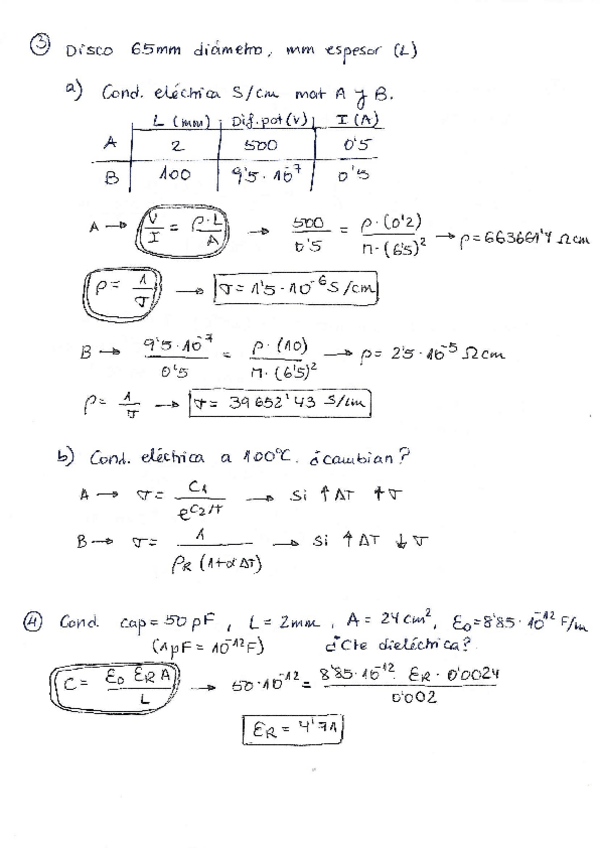 ③ Disco 65mm diámetro, mm espesor (L)
a) Cond. eléctrica S/cm mat A y B.
L (mm) Dif.pot (V) I (A)
A 2 500 0'5
B 100 9'5·10⁻⁷ 0'5
A → V/I = ρ·L/A → 500/0'5 = ρ·(0'2)/π·(6'5)² → ρ=663661'4 Ωcm
ρ = 1/σ → σ = 1'5·10⁻⁶ S/cm
B → 9'5·10⁻⁷/0'5 = ρ·(10)/π·(6'5)² → ρ= 2'5·10⁻⁵ Ωcm
ρ= 1/σ → σ= 39652'43 S/cm
b) Cond. eléctrica a 100ºC. ¿cambian?
A → σ = C1/e^C2/T → Si ↑ ΔT ↑ σ
B → σ= 1/ρR (1+αΔT) → Si ↑ ΔT ↓ σ
④ Cond. cap = 50 pF, L = 2mm, A = 24 cm², ε0=8'85·10⁻¹² F/m
(1pF = 10⁻¹²F) ¿Cte dieléctrica?
C = ε0 εR A/L → 50·10⁻¹² = 8'85·10⁻¹² · εR · 0'0024/0'002
εR = 4'71